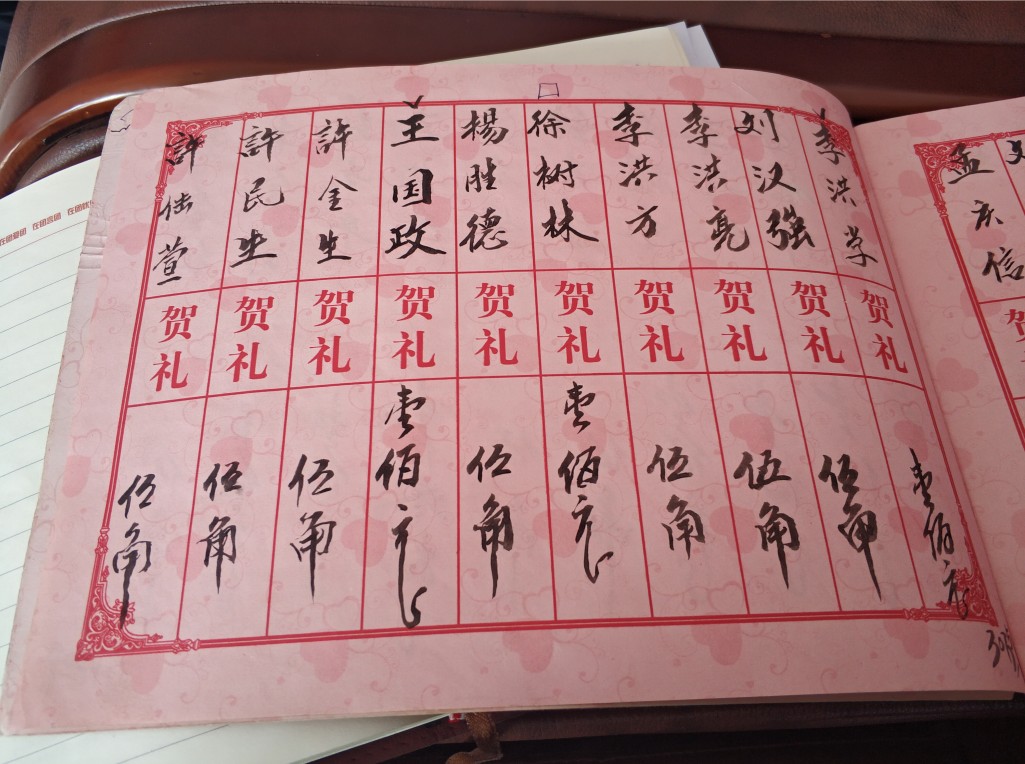 孟庆信
贺
李洪学 贺礼 壹佰元
刘汉强 贺礼 伍角
李洪亮 贺礼 伍角
李洪方 贺礼 伍角
徐树林 贺礼 壹佰元
楊胜德 贺礼 伍角
王国政 贺礼 壹佰元
許金生 贺礼 伍角
許民生 贺礼 伍角
許 萱 贺礼 伍角
在团爱团 在团言团